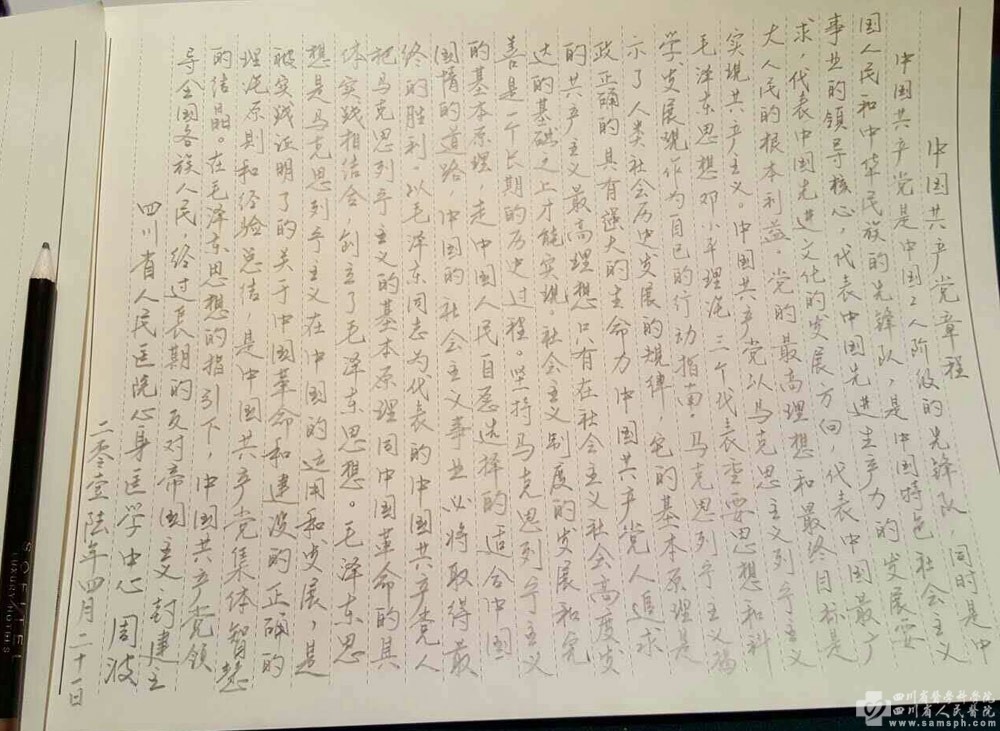 中国共产党章程
中国共产党是中国工人阶级的先锋队，同时是中
国人民和中华民族的先锋队，是中国特色社会主义
事业的领导核心，代表中国先进生产力的发展要
求，代表中国先进文化的发展方向，代表中国最广
大人民的根本利益。党的最高理想和最终目标是
实现共产主义。中国共产党以马克思主义列宁主义
毛泽东思想邓小平理论 三个代表重要思想和科
学发展观作为自己的行动指南。马克思列宁主义揭
示了人类社会历史发展的规律，它的基本原理是
政正确的具有强大的生命力 中国共产党人追求
的共产主义最高理想只有在社会主义社会高度发
达的基础之上才能实现。社会主义制度的发展和完
善是一个长期的历史过程。坚持马克思列宁主义
的基本原理，走中国人民自愿选择的适合中国
国情的道路，中国的社会主义事业必将取得最
终的胜利。以毛泽东同志为代表的中国共产党人
把马克思列宁主义的基本原理同中国革命的具
体实践相结合 创立了毛泽东思想。毛泽东思
想是马克思列宁主义在中国的运用和发展，是
被实践证明了的关于中国革命和建设的正确的
理论原则和经验总结，是中国共产党集体智慧
的结晶。在毛泽东思想的指引下，中国共产党领
导全国各族人民 经过长期的反对帝国主义封建主
四川省人民医院心身医学中心 周波
二零壹陆年四月二十一日
SOFITEL
LUXURY HOTELS
四川省医学科学院
四川省人民医院
www.samsph.com